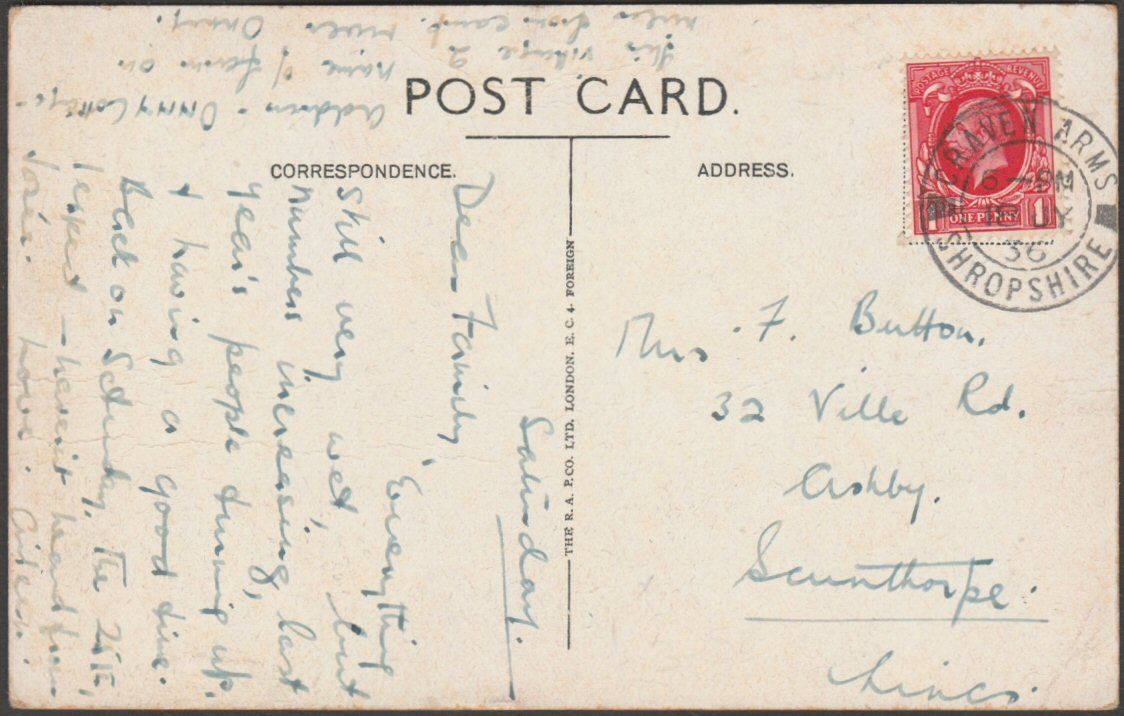 POST CARD.
CORRESPONDENCE.
ADDRESS.
POSTAGE REVENUE
1 ONE PENNY 1
CRAVEN ARMS
6 — PM
18 JY
36
SHROPSHIRE
THE R. A. P. CO. LTD. LONDON. E. C. 4. FOREIGN
Mrs. F. Button.
32 Ville Rd.
Ashby.
Scunthorpe.
Lincs.
Saturday.
Dear Family,
Everything
still very wet, but
numbers increasing, last
year's people turning up.
& having a good time.
Back on Saturday, the 25th,
I expect — haven't heard from
home.
address - ONNY Cottage -
name of farm on
this village 2
miles from camp.
river
Onny.